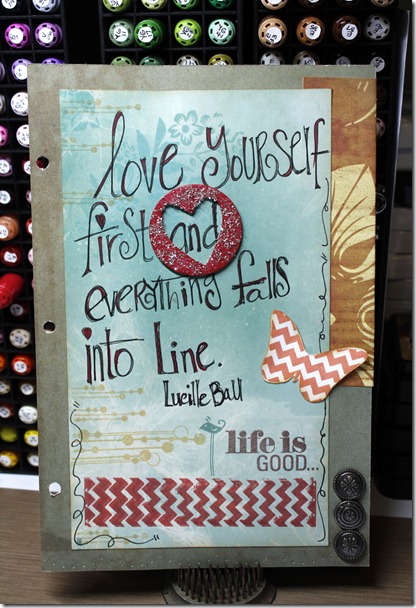 love yourself
first and
everything falls
into Line.
Lucille Ball
life is
GOOD...